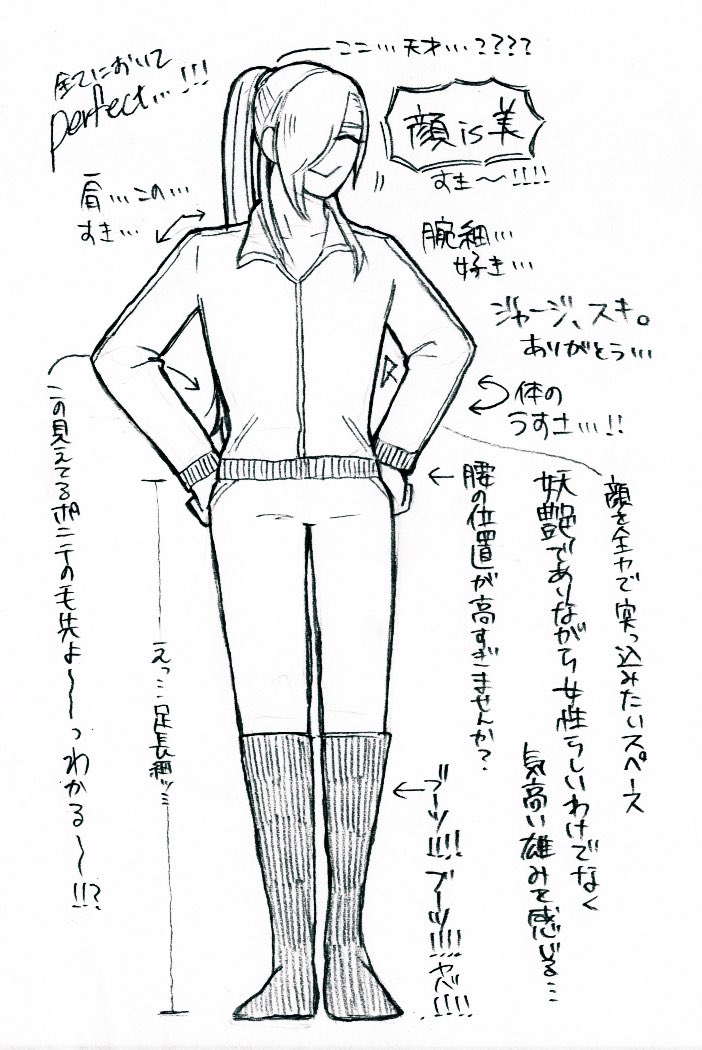 ここ…天才…????
全てにおいて
perfect…!!!
顔is美
すき〜!!!!
肩…この…
すき…
腕細…
好き…
ジャージ、スキ。
ありがとう…
体の
うすさ…!!
この見えてるポニテの毛先よ〜〜っわかる〜〜!!?
えっ…足長細ッ…
腰の位置が高すぎませんか?
顔を全力で突っ込みたいスペース
妖艶でありながら女性らしいわけでなく
気高い雄みを感じる…
ブーツ!!!! ブーツ!!!! ヤバ!!!!